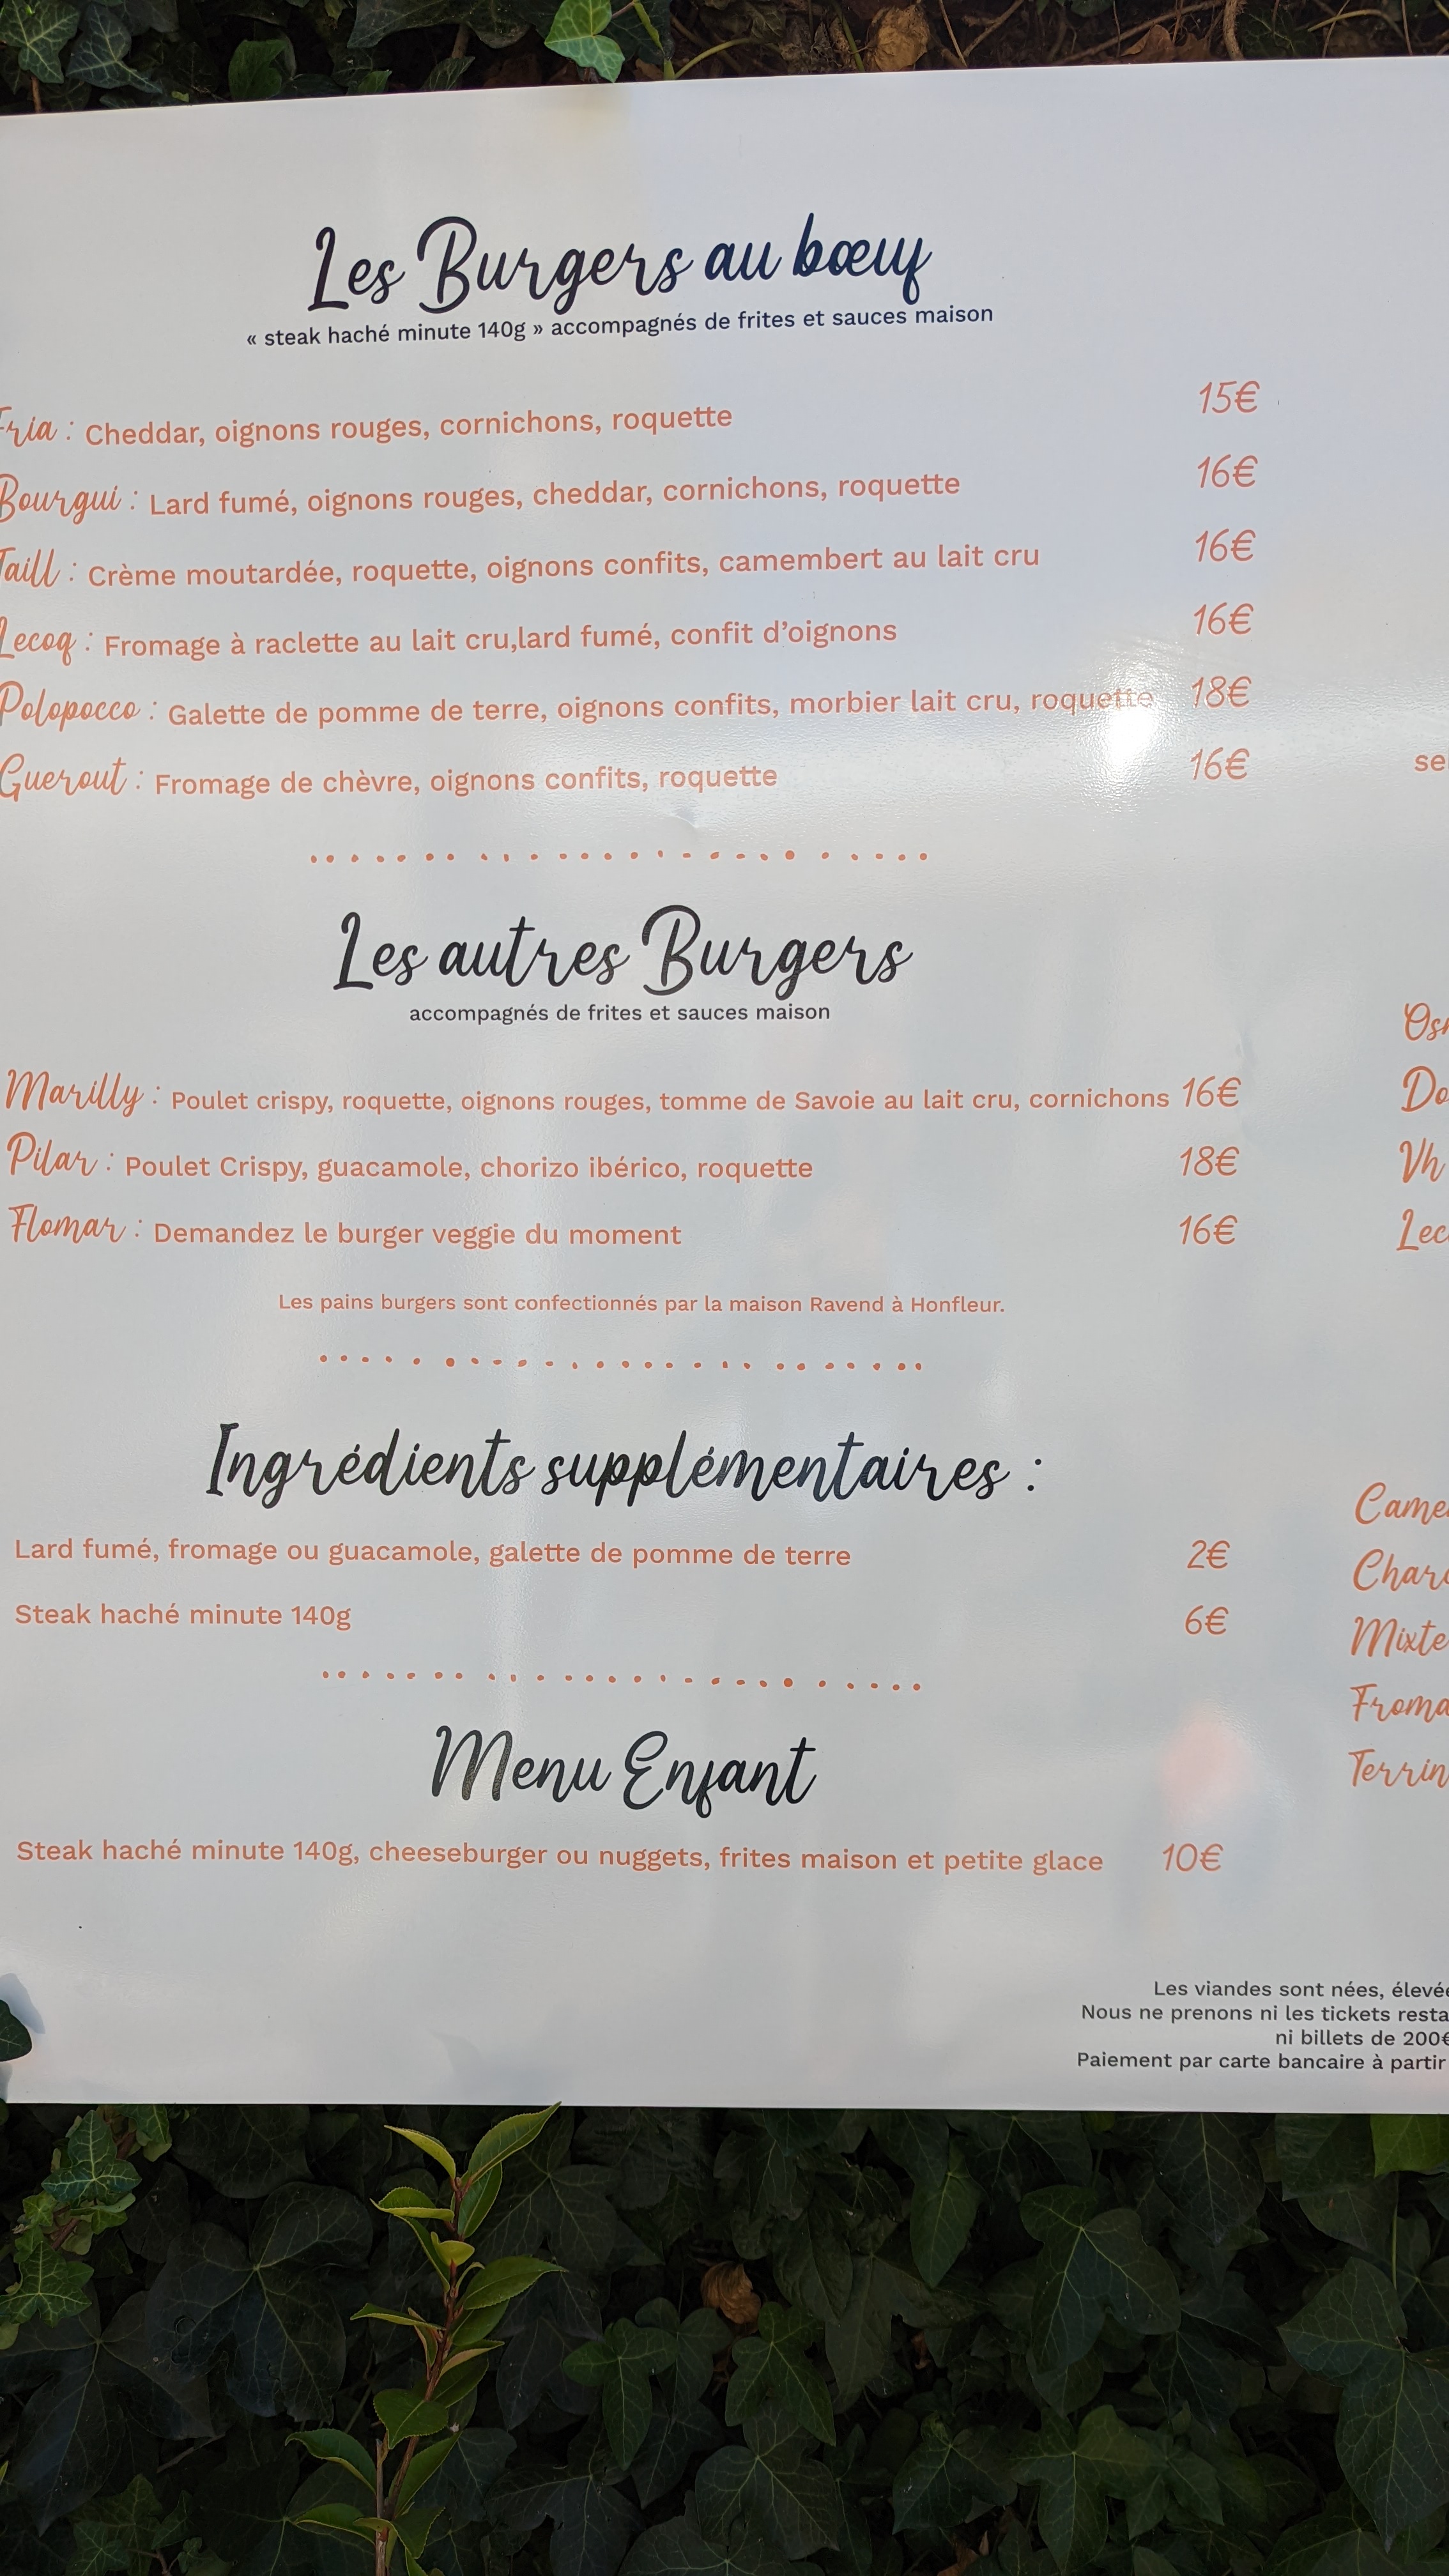 Les Burgers au bœuf
« steak haché minute 140g » accompagnés de frites et sauces maison
Fria : Cheddar, oignons rouges, cornichons, roquette 15€
Bourgui : Lard fumé, oignons rouges, cheddar, cornichons, roquette 16€
Taill : Crème moutardée, roquette, oignons confits, camembert au lait cru 16€
Lecoq : Fromage à raclette au lait cru,lard fumé, confit d’oignons 16€
Polopocco : Galette de pomme de terre, oignons confits, morbier lait cru, roquette 18€
Guerout : Fromage de chèvre, oignons confits, roquette 16€
Les autres Burgers
accompagnés de frites et sauces maison
Marilly : Poulet crispy, roquette, oignons rouges, tomme de Savoie au lait cru, cornichons 16€
Pilar : Poulet Crispy, guacamole, chorizo ibérico, roquette 18€
Flomar : Demandez le burger veggie du moment 16€
Les pains burgers sont confectionnés par la maison Ravend à Honfleur.
Ingrédients supplémentaires :
Lard fumé, fromage ou guacamole, galette de pomme de terre 2€
Steak haché minute 140g 6€
Menu Enfant
Steak haché minute 140g, cheeseburger ou nuggets, frites maison et petite glace 10€
Vh
Mixte
Les viandes sont nées,
Nous ne prenons ni les tickets
ni billets de 200€
Paiement par carte bancaire à partir